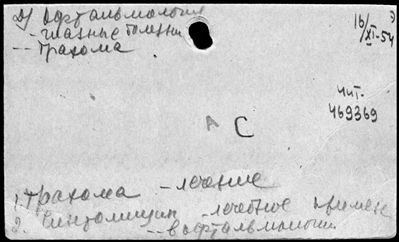 2) Офтальмология
- глазные болезни
-- Трахома
16/XI-54
чит-
469369
А С
1. Трахома - лечение
2. Синтомицин - лечебное примен.
-- в офтальмологии